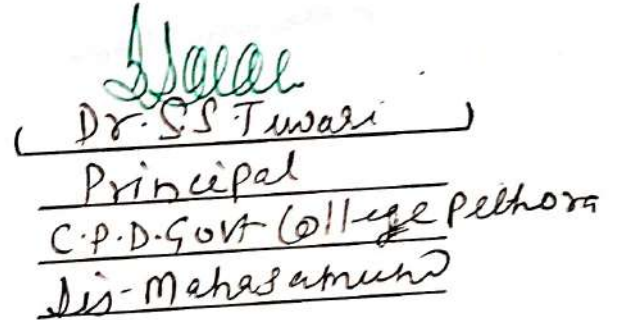 ( Dr. S.S. Tiwari )
Principal
C.P.D. Govt College Pithora
Dis - Mahasamund